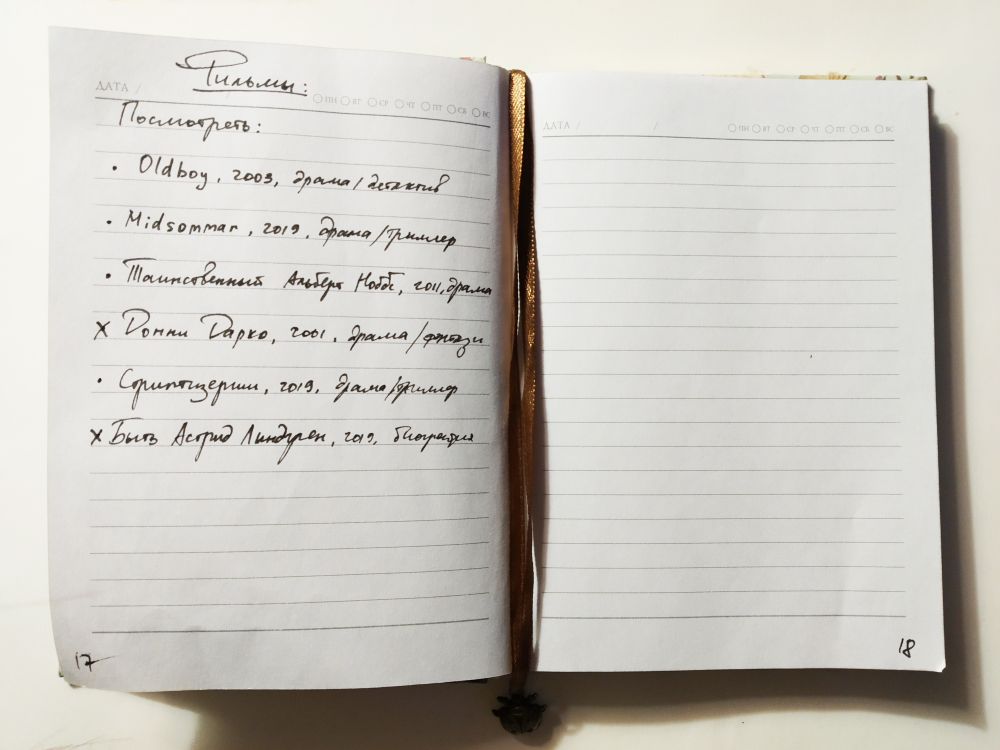 Фильмы:
ДАТА / / ПН ВТ СР ЧТ ПТ СБ ВС
Посмотреть:
• Oldboy, 2003, драма/детектив
• Midsommar, 2019, драма/триллер
• Таинственный Альберт Ноббс, 2011, драма
x Донни Дарко, 2001, драма/фэнтези
• Стриптизерши, 2019, драма/триллер
x Быть Астрид Линдгрен, 2019, биография
17
ДАТА / / ПН ВТ СР ЧТ ПТ СБ ВС
18